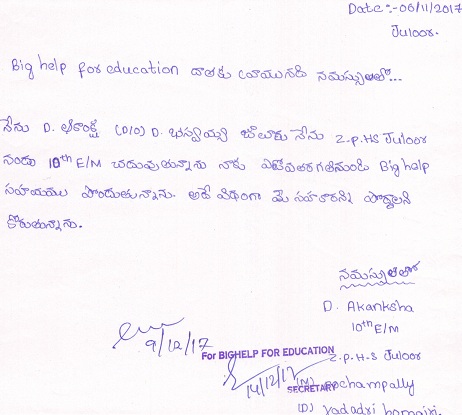 Date :- 06/11/2017
Juloor.
Big help for education దాతకు వ్రాయునది నమస్సులతో...
నేను D. ఆకాంక్ష (D/O) D. జూలూరు నేను Z.p.HS Juloor
నందు 10th E/M చదువుతున్నాను నాకు Big help
సహాయము పొందుతున్నాను. అదే విధంగా మీ సహకారాన్ని
కోరుతున్నాను.
నమస్సులతో
D. Akanksha
10th E/M
9/12/17
For BIGHELP FOR EDUCATION
Z.p.H-S Juloor
14/12/17
SECRETARY
(M) pochampally
(D) Yadadri